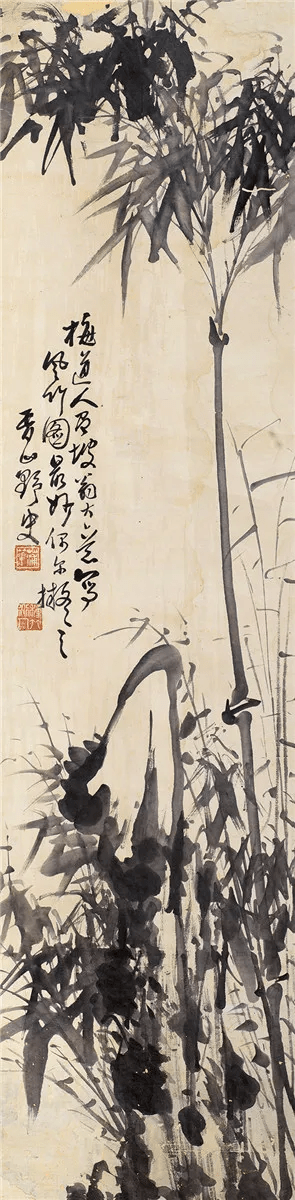 梅道人有坡翁大意写
风竹图最妙偶尔拟之
香山野史